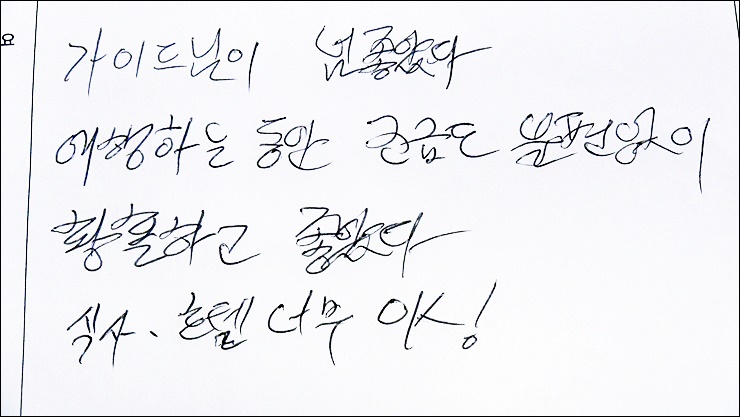 가이드님이 넘좋았다
여행하는 동안 조금도 불편없이
황홀하고 좋았다
식사. 호텔 너무